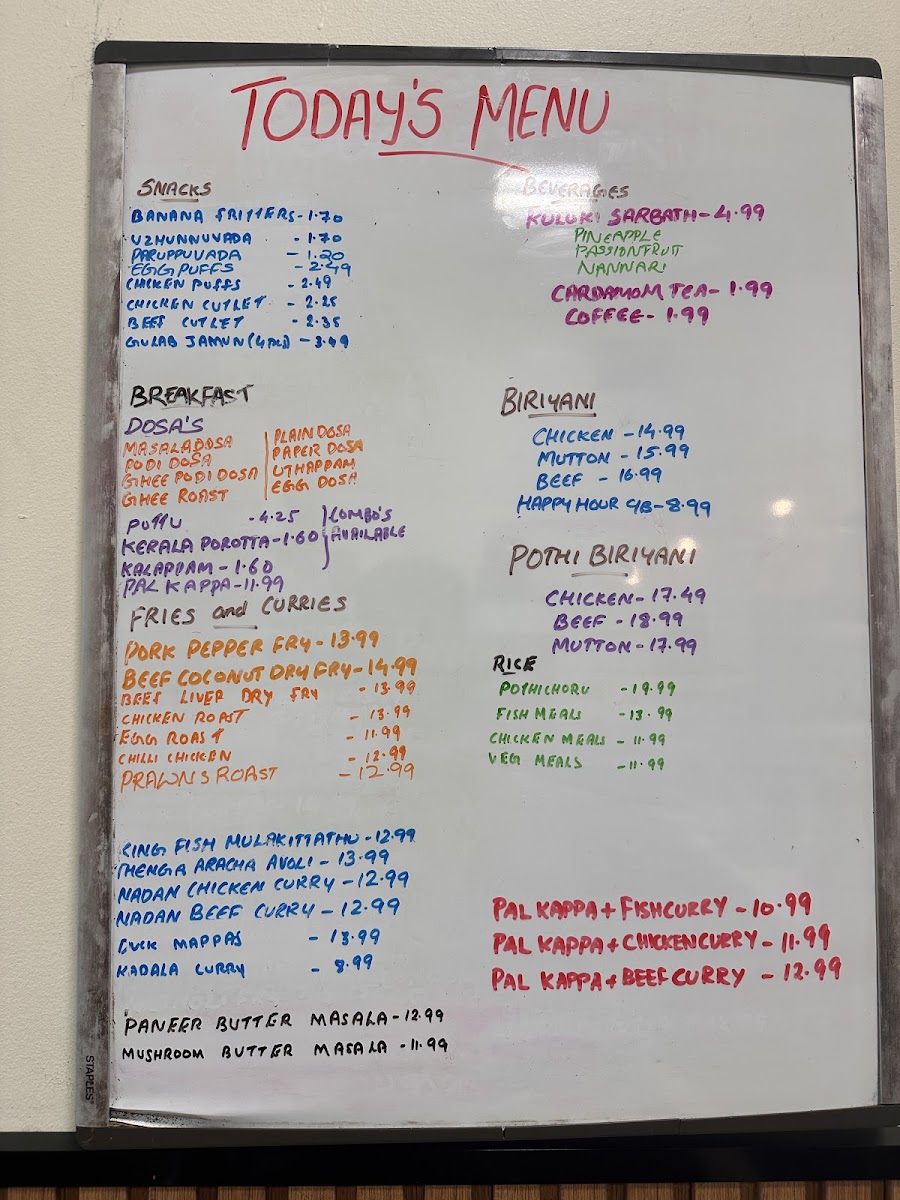 TODAY'S MENU
SNACKS
BANANA FRITTERS - 1.70
UZHUNNUVADA - 1.70
PARUPPUVADA - 1.20
EGG PUFFS - 2.49
CHICKEN PUFFS - 2.49
CHICKEN CUTLET - 2.25
BEEF CUTLET - 2.35
GULAB JAMUN (4 PCS) - 3.49
BREAKFAST
DOSA'S
MASALA DOSA
PODI DOSA
GHEE PODI DOSA
GHEE ROAST
PLAIN DOSA
PAPER DOSA
UTHAPPAM
EGG DOSA
PUTTU - 4.25
KERALA POROTTA - 1.60
KALAPPAM - 1.60
COMBO'S
AVAILABLE
PAL KAPPA - 11.99
FRIES and CURRIES
PORK PEPPER FRY - 13.99
BEEF COCONUT DRY FRY - 14.99
BEEF LIVER DRY FRY - 13.99
CHICKEN ROAST - 13.99
EGG ROAST - 11.99
CHILLI CHICKEN - 12.99
PRAWNS ROAST - 12.99
KING FISH MULAKITTATHU - 12.99
THENGA ARACHA AVOLI - 13.99
NADAN CHICKEN CURRY - 12.99
NADAN BEEF CURRY - 12.99
DUCK MAPPAS - 13.99
KADALA CURRY - 8.99
PANEER BUTTER MASALA - 12.99
MUSHROOM BUTTER MASALA - 11.99
BEVERAGIES
KULUKI SARBATH - 4.99
PINEAPPLE
PASSIONFRUIT
NANNARI
CARDAMOM TEA - 1.99
COFFEE - 1.99
BIRIYANI
CHICKEN - 14.99
MUTTON - 15.99
BEEF - 16.99
HAPPY HOUR CB - 8.99
POTHI BIRIYANI
CHICKEN - 17.49
BEEF - 18.99
MUTTON - 17.99
RICE
POTHICHORU - 19.99
FISH MEALS - 13.99
CHICKEN MEALS - 11.99
VEG MEALS - 11.99
PAL KAPPA + FISH CURRY - 10.99
PAL KAPPA + CHICKEN CURRY - 11.99
PAL KAPPA + BEEF CURRY - 12.99
STAPLES